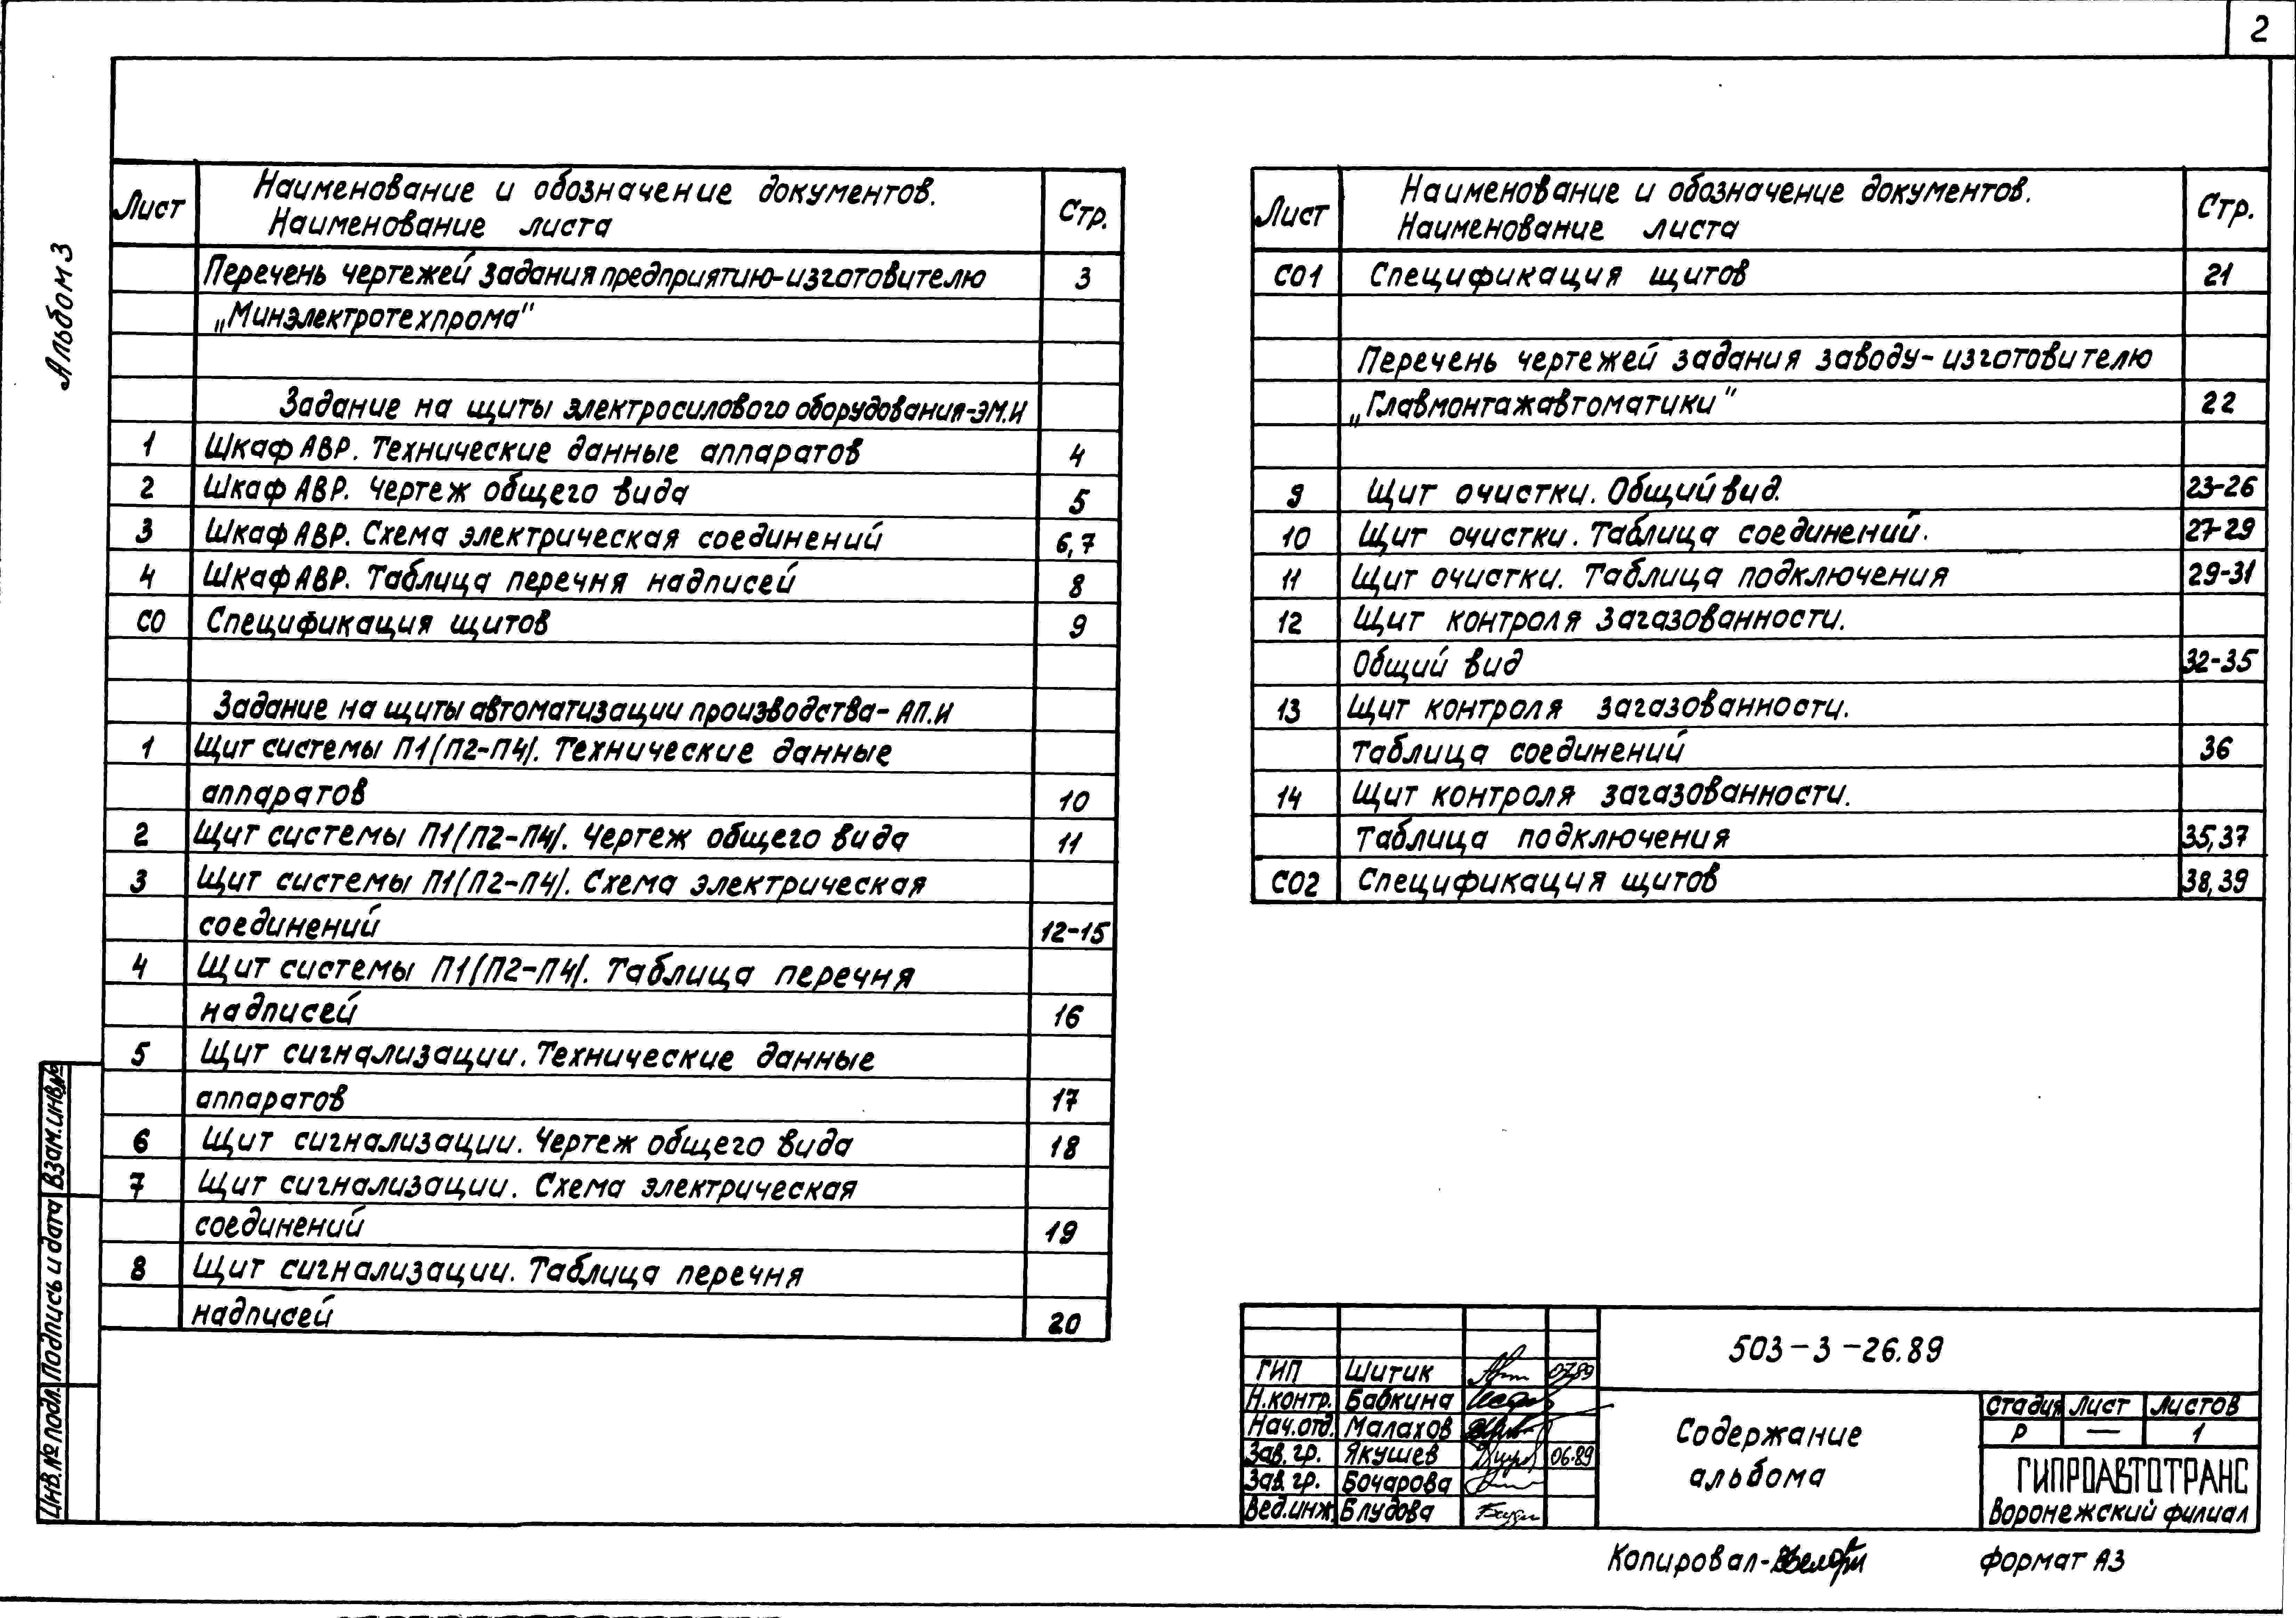 2
Альбом 3
Лист Наименование и обозначение документов. Стр.
Наименование листа
Перечень чертежей задания предприятию-изготовителю 3
„Минэлектротехпрома"
Задание на щиты электросилового оборудования-ЭМ.И
1 Шкаф АВР. Технические данные аппаратов 4
2 Шкаф АВР. Чертеж общего вида 5
3 Шкаф АВР. Схема электрическая соединений 6,7
4 Шкаф АВР. Таблица перечня надписей 8
СО Спецификация щитов 9
Задание на щиты автоматизации производства-АП.И
1 Щит системы П1(П2-П4). Технические данные
аппаратов 10
2 Щит системы П1(П2-П4). Чертеж общего вида 11
3 Щит системы П1(П2-П4). Схема электрическая
соединений 12-15
4 Щит системы П1(П2-П4). Таблица перечня
надписей 16
5 Щит сигнализации. Технические данные
аппаратов 17
6 Щит сигнализации. Чертеж общего вида 18
7 Щит сигнализации. Схема электрическая
соединений 19
8 Щит сигнализации. Таблица перечня
надписей 20
Лист Наименование и обозначение документов. Стр.
Наименование листа
СО1 Спецификация щитов 21
Перечень чертежей задания заводу-изготовителю
„Главмонтажавтоматики" 22
9 Щит очистки. Общий вид. 23-26
10 Щит очистки. Таблица соединений. 27-29
11 Щит очистки. Таблица подключения 29-31
12 Щит контроля загазованности.
Общий вид 32-35
13 Щит контроля загазованности.
Таблица соединений 36
14 Щит контроля загазованности.
Таблица подключения 35,37
СО2 Спецификация щитов 38,39
Инв.№ подл. Подпись и дата Взам.инв.№
503-3-26.89
ГИП Шитик 07.89
Н.контр. Бабкина
Нач.отд. Малахов
Зав. гр. Якушев 06.89
Зав. гр. Бочарова
Вед.инж. Блудова
Содержание
альбома
Стадия Лист Листов
Р — 1
ГИПРОАВТОТРАНС
Воронежский филиал
Копировал-
Формат А3